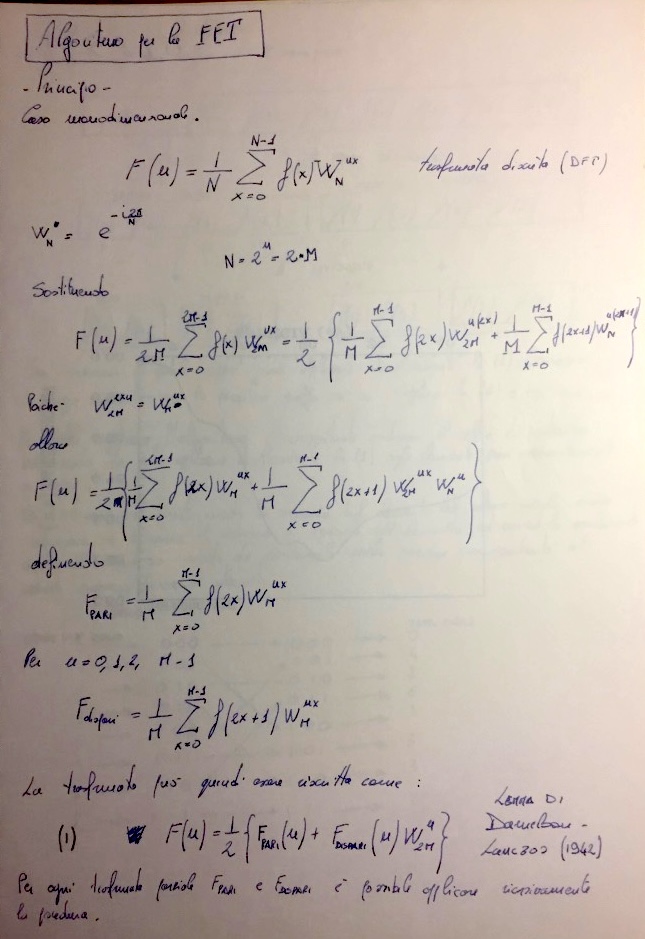 Algoritmo per la FFT
- Principio -
Caso monodimensionale.
F(u) = 1/N ∑_{x=0}^{N-1} f(x) W_N^{ux} trasformata discreta (DFT)
W_N = e^{-i2π/N}
N = 2^n = 2·M
Sostituendo
F(u) = 1/2M ∑_{x=0}^{2M-1} f(x) W_{2M}^{ux} = 1/2 { 1/M ∑_{x=0}^{M-1} f(2x) W_{2M}^{u(2x)} + 1/M ∑_{x=0}^{M-1} f(2x+1) W_N^{u(2x+1)} }
Poiche- W_{2M}^{2xu} = W_M^{ux}
allora
F(u) = 1/2 { 1/M ∑_{x=0}^{2M-1} f(2x) W_M^{ux} + 1/M ∑_{x=0}^{M-1} f(2x+1) W_{2M}^{ux} W_N^{u} }
definendo
F_{PARI} = 1/M ∑_{x=0}^{M-1} f(2x) W_M^{ux}
Per u = 0, 1, 2, M-1
F_{dispari} = 1/M ∑_{x=0}^{M-1} f(2x+1) W_M^{ux}
La trasformata può quindi essere riscritta come :
(1) F(u) = 1/2 { F_{PARI}(u) + F_{DISPARI}(u) W_{2M}^{u} }
LEMMA DI
Danielson -
Lanczos (1942)
Per ogni trasformata parziale F_{PARI} e F_{DISPARI} è possibile applicare ricorsivamente
la procedura.